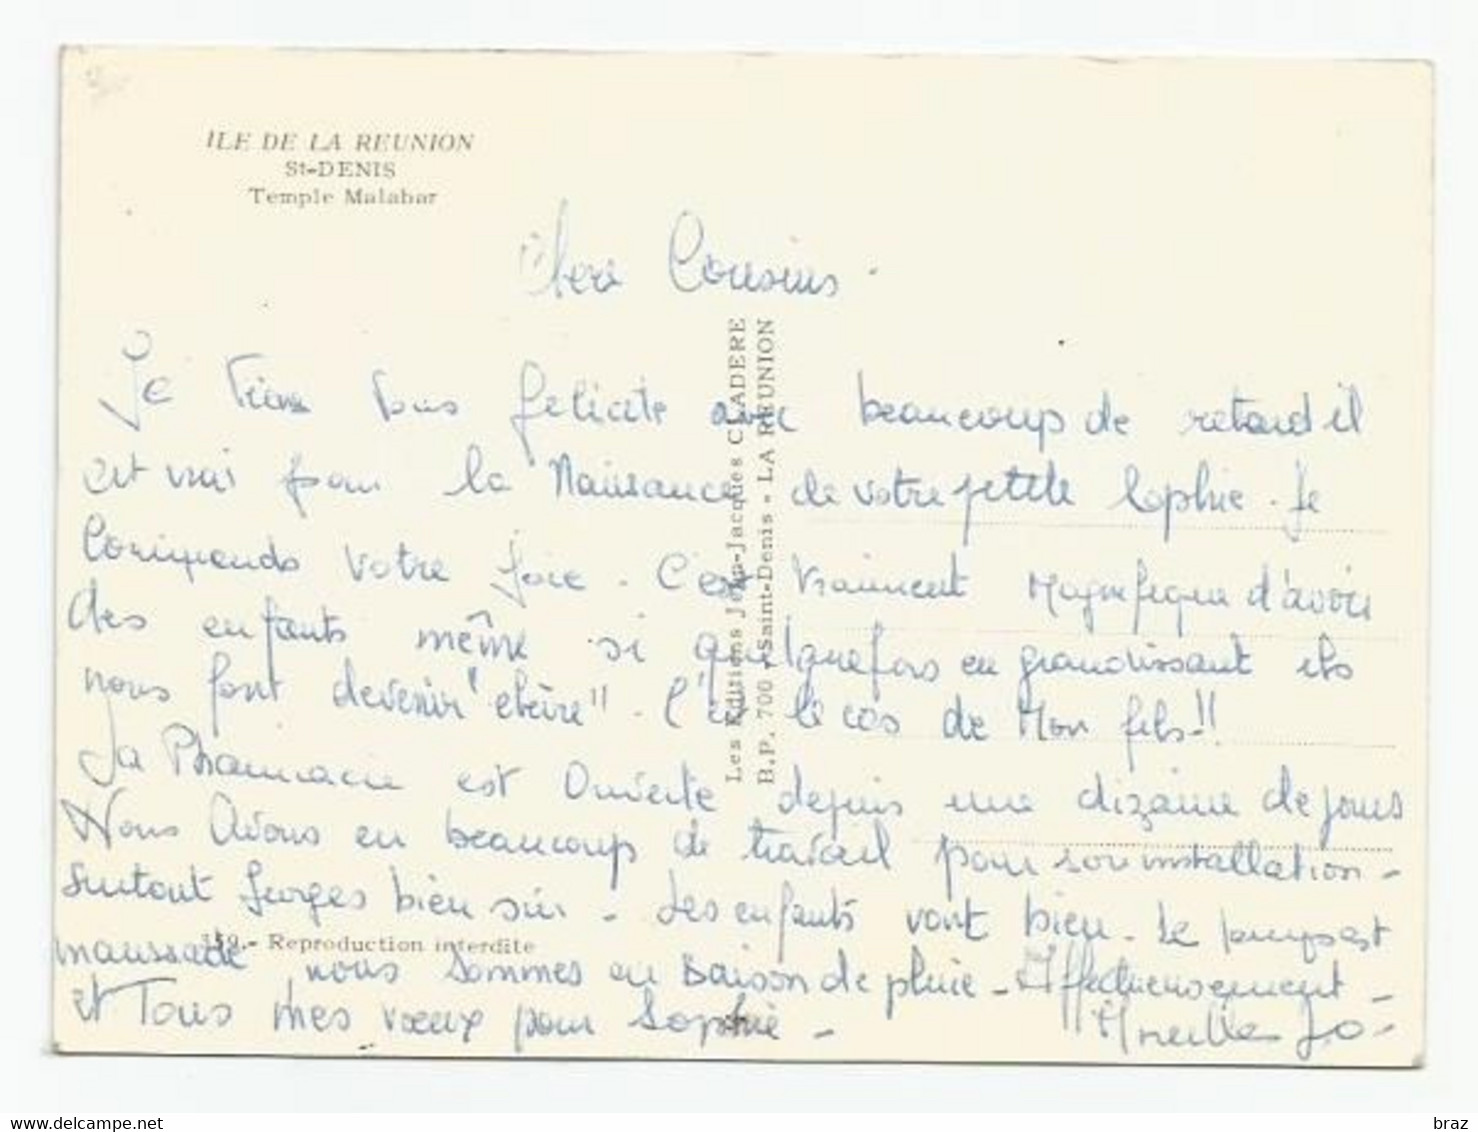 ILE DE LA REUNION
St-DENIS
Temple Malabar
Chers Cousins
Je viens vous féliciter avec beaucoup de retard il
est vrai pour la Naissance de votre petite Sophie. Je
Comprends votre joie. C'est vraiment Magnifique d'avoir
des enfants même si quelquefois en grandissant ils
nous font devenir "chèvre". C'est le cas de Mon fils!!
La Pharmacie est Ouverte depuis une dizaine de jours
Nous Avons eu beaucoup de travail pour son installation -
Surtout Georges bien sûr - Les enfants vont bien - Le temps est
maussade nous sommes en saison de pluie - Affectueusement -
et Tous mes vœux pour Sophie -
Mireille Jo -
Les Editions Jean-Jacques CLADERE
B.P. 700 - Saint-Denis - LA REUNION
359.- Reproduction interdite
Delcampe.net
braz